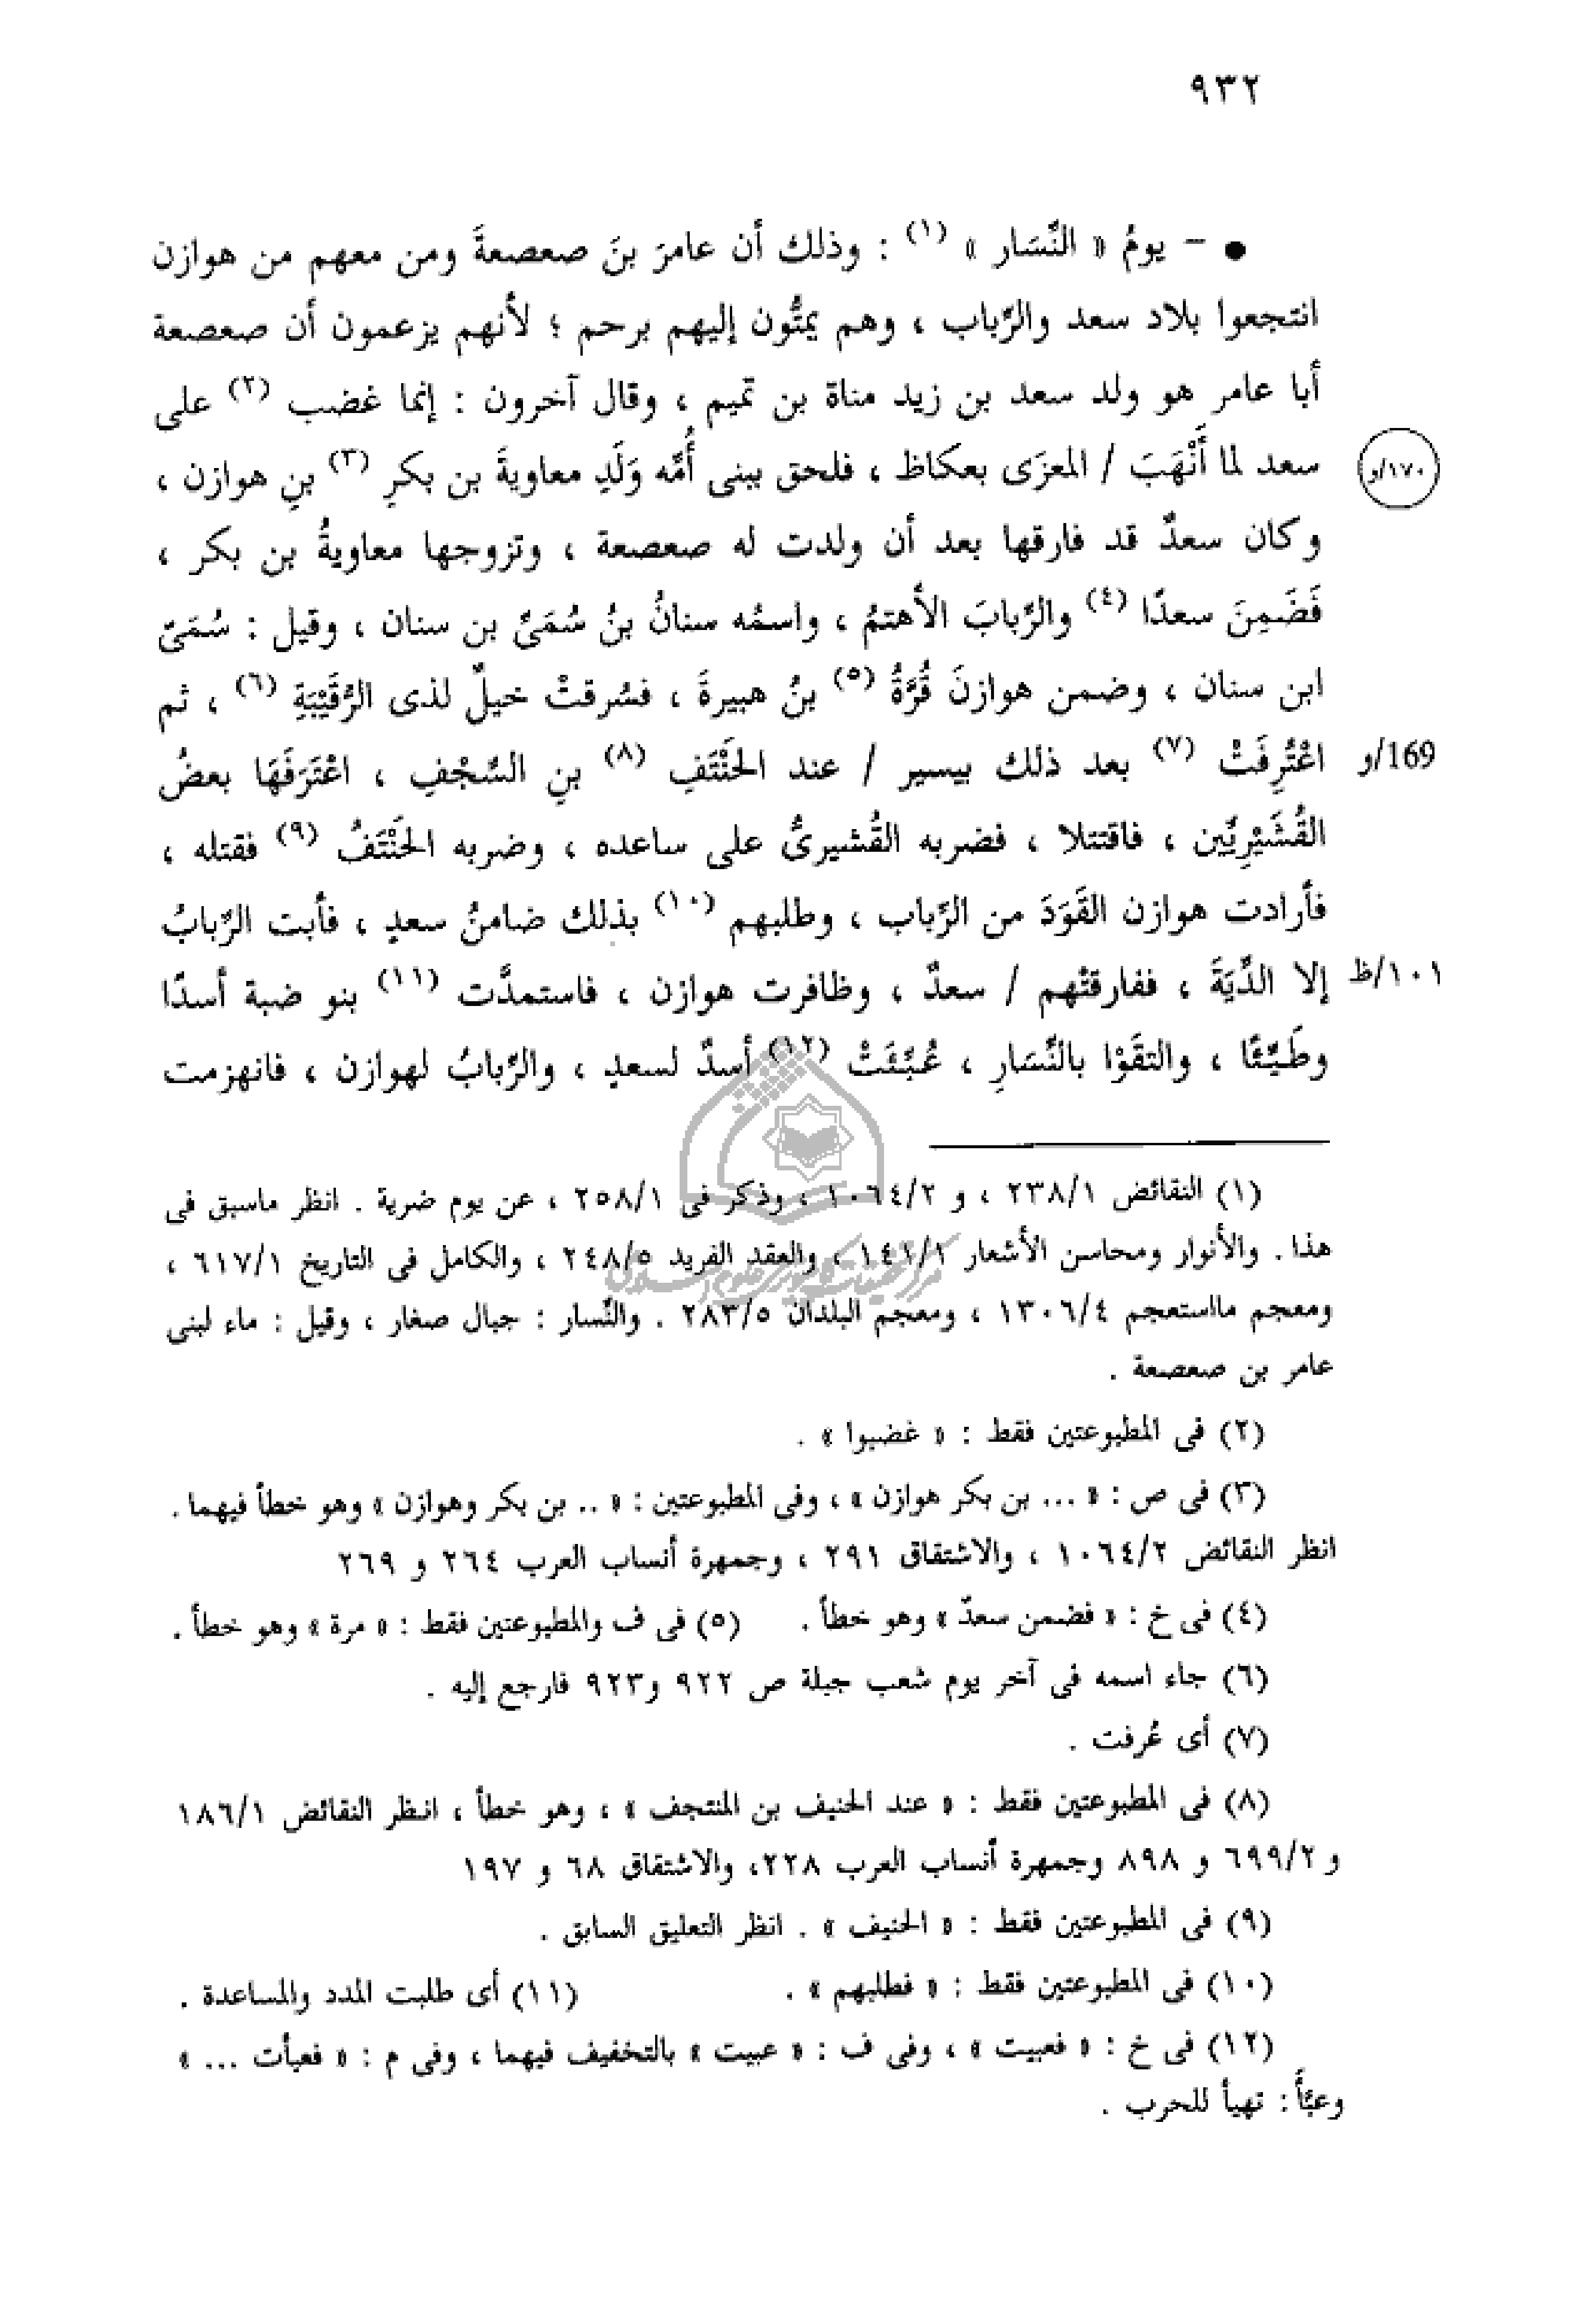 ٩٣٢
● - يومُ « النِّسَار » (١) : وذلك أن عامرَ بنَ صعصعةَ ومن معهم من هوازن
انتجعوا بلاد سعد والرِّباب ، وهم يمتُّون إليهم برحم ؛ لأنهم يزعمون أن صعصعة
أبا عامر هو ولد سعد بن زيد مناة بن تميم ، وقال آخرون : إنما غضب (٢) على
سعد لما أَنْهَبَ / المعزَى بعكاظ ، فلحق ببنى أُمِّه وَلَدِ معاويةَ بن بكرِ (٣) بنِ هوازن ، ١٧٠/و
وكان سعدٌ قد فارقها بعد أن ولدت له صعصعة ، وتزوجها معاويةُ بن بكر ،
فَضَمِنَ سعدًا (٤) والرِّبابَ الأهتمُ ، واسمُه سنانُ بنُ سُمَىِّ بن سنان ، وقيل : سُمَىّ
ابن سنان ، وضمن هوازنَ قُرَّةُ (٥) بنُ هبيرةَ ، فسُرقتْ خيلٌ لذى الرُّقَيْبَةِ (٦) ، ثم
اعْتُرِفَتْ (٧) بعد ذلك بيسير / عند الحَنْتَفِ (٨) بنِ السِّجْفِ ، اعْتَرَفَهَا بعضُ 169/و
القُشَيْرِيِّين ، فاقتتلا ، فضربه القُشيرىُّ على ساعده ، وضربه الحَنْتَفُ (٩) فقتله ،
فأرادت هوازن القَوَدَ من الرِّباب ، وطلبهم (١٠) بذلك ضامنُ سعدٍ ، فأبت الرِّبابُ
إلا الدِّيَةَ ، ففارقتْهم / سعدٌ ، وظافرت هوازن ، فاستمدَّت (١١) بنو ضبة أسدًا ١٠١/ظ
وطَيِّئًا ، والتقَوْا بالنِّسَارِ ، عُبِّئَتْ (١٢) أسدٌ لسعدٍ ، والرِّبابُ لهوازن ، فانهزمت
(١) النقائض ٢٣٨/١ ، و ١٠٦٤/٢ ، وذكر فى ٢٥٨/١ ، عن يوم ضرية . انظر ماسبق فى
هذا . والأنوار ومحاسن الأشعار ١٤١/١ ، والعقد الفريد ٢٤٨/٥ ، والكامل فى التاريخ ٦١٧/١ ،
ومعجم مااستعجم ١٣٠٦/٤ ، ومعجم البلدان ٢٨٣/٥ . والنِّسار : جبال صغار ، وقيل : ماء لبنى
عامر بن صعصعة .
(٢) فى المطبوعتين فقط : « غضبوا » .
(٣) فى ص : « ... بن بكر هوازن » ، وفى المطبوعتين : « .. بن بكر وهوازن » وهو خطأ فيهما .
انظر النقائض ١٠٦٤/٢ ، والاشتقاق ٢٩١ ، وجمهرة أنساب العرب ٢٦٤ و ٢٦٩
(٤) فى خ : « فضمن سعدٌ » وهو خطأ . (٥) فى ف والمطبوعتين فقط : « مرة » وهو خطأ .
(٦) جاء اسمه فى آخر يوم شعب جبلة ص ٩٢٢ و٩٢٣ فارجع إليه .
(٧) أى عُرفت .
(٨) فى المطبوعتين فقط : « عند الحنيف بن المنتجف » ، وهو خطأ ، انظر النقائض ١٨٦/١
و ٦٩٩/٢ و ٨٩٨ وجمهرة أنساب العرب ٢٢٨، والاشتقاق ٦٨ و ١٩٧
(٩) فى المطبوعتين فقط : « الحنيف » . انظر التعليق السابق .
(١٠) فى المطبوعتين فقط : « فطلبهم » . (١١) أى طلبت المدد والمساعدة .
(١٢) فى خ : « فعبيت » ، وفى ف : « عبيت » بالتخفيف فيهما ، وفى م : « فعبأت ... »
وعبَّأ : تهيأ للحرب .